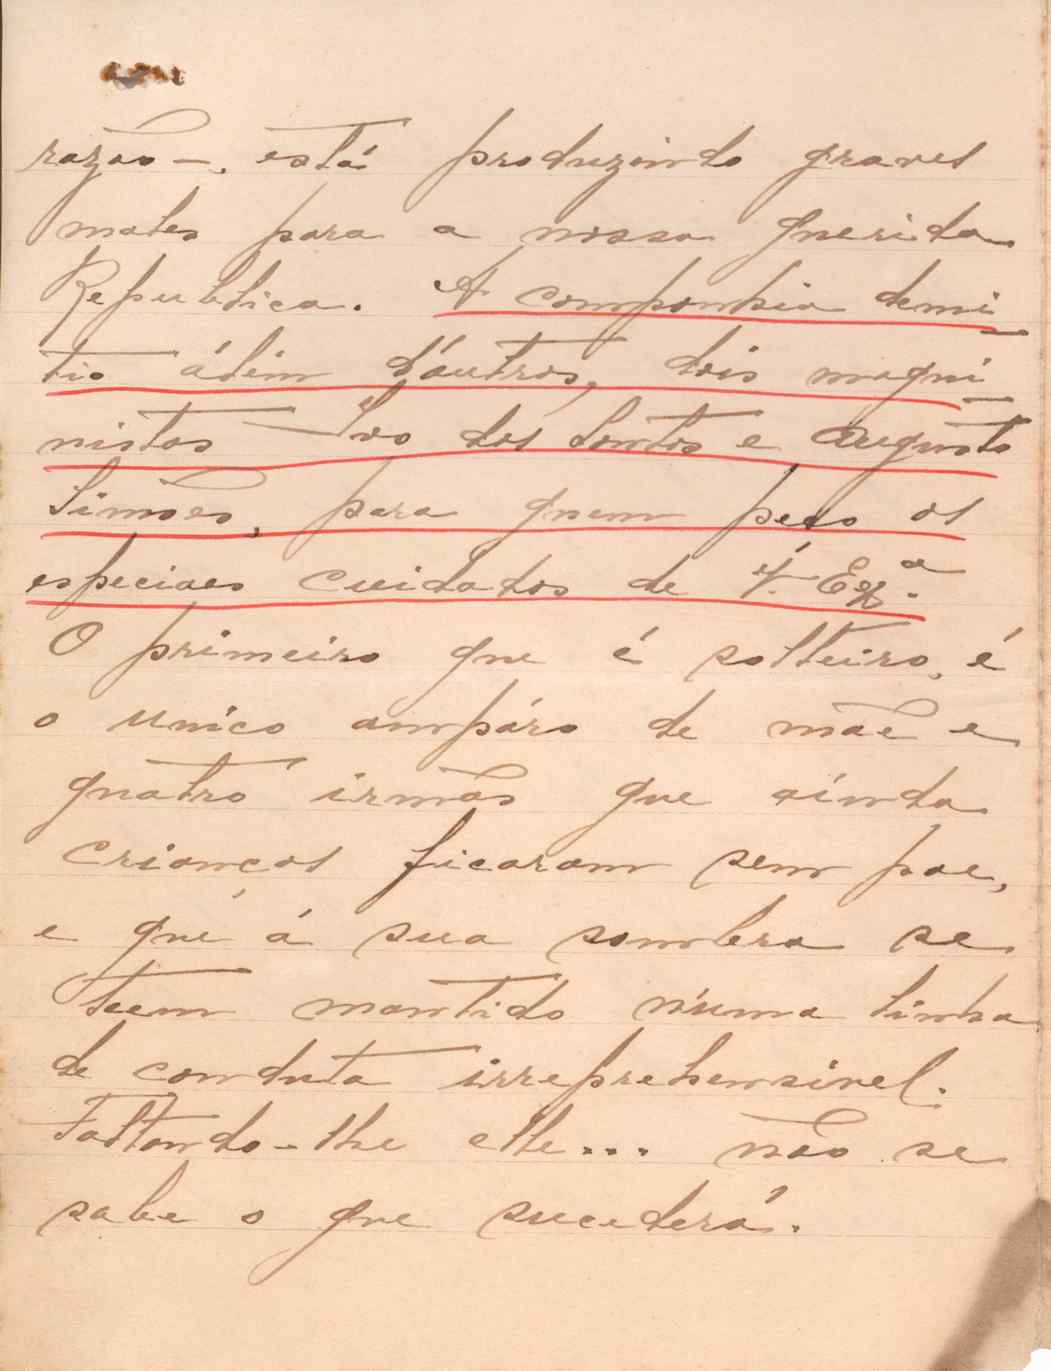 razão —, está produzindo graves
males para a nossa querida
Republica. A companhia demi-
tio álém d'áutros, dois maqui-
nistas — Ivo dos Santos e Augusto
Simões, para quem peço os
especiaes cuidados de V. Exª.
O primeiro que é solteiro, é
o unico ampáro de mãe e
quatro irmãos que ainda
crianças ficaram sem pae,
e que á sua sombra se
teem mantido n'uma linha
de conduta irreprehensivel.
Faltando-lhe elle... não se
sabe o que sucederá.